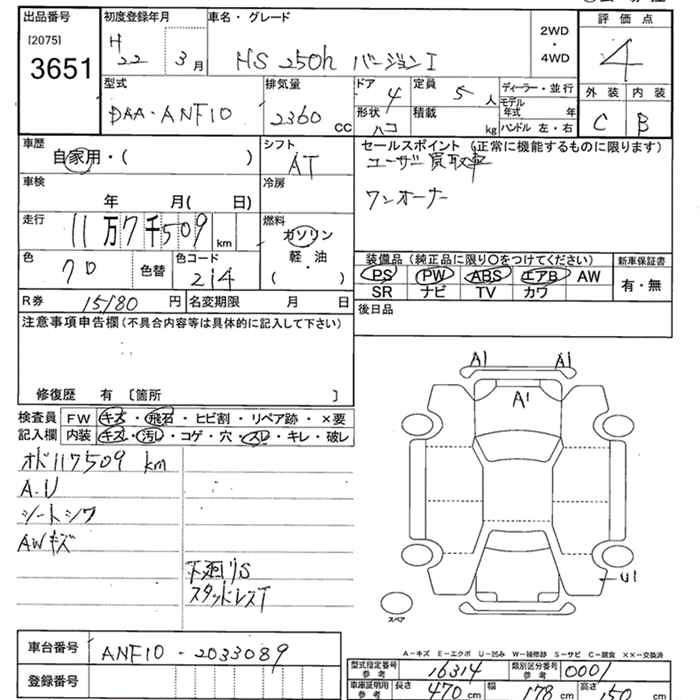 出品番号 初度登録年月 車名・グレード 評価点
[2075] H 22 3月 HS 250h バージョンI 2WD ・ 4WD 4
3651
型式 排気量 ドア 4 定員 5 人 ディーラー・並行 外装 内装
DAA-ANF10 2360 cc 形状 ハコ 積載 kg モデル年式 年 C B
ハンドル 左・右
車歴 シフト セールスポイント (正常に機能するものに限ります)
自家用・( ) AT ユーザー買取車
車検 冷房
年 月( 日) ワンオーナー
走行 11万7千509 km 燃料 ガソリン
軽・油
・
( )
色 クロ 色替 色コード 214
装備品(純正品に限り○をつけてください) 新車保証書
PS PW ABS エアB AW 有・無
SR ナビ TV カワ
R券 15180 円 名変期限 月 日 後日品
注意事項申告欄(不具合内容等は具体的に記入して下さい)
修復歴 有 〔箇所 〕
検査員 FW キズ・飛石・ヒビ割・リペア跡・×要
記入欄 内装 キズ・汚レ・コゲ・穴・スレ・キレ・破レ
オド117509 km
A-U
シートシワ
AWキズ
下廻りS
スタッドレスT
A1 A1
A1
U1
スペア
A-キズ E-エクボ U-凹み W-補修跡 S-サビ C-腐食 ××-交換済
車台番号 ANF10-2033089
登録番号
型式指定番号 参考 16314 類別区分番号 参考 0001
車庫証明用 参考 長さ 470 cm 幅 178 cm 高さ 150 cm